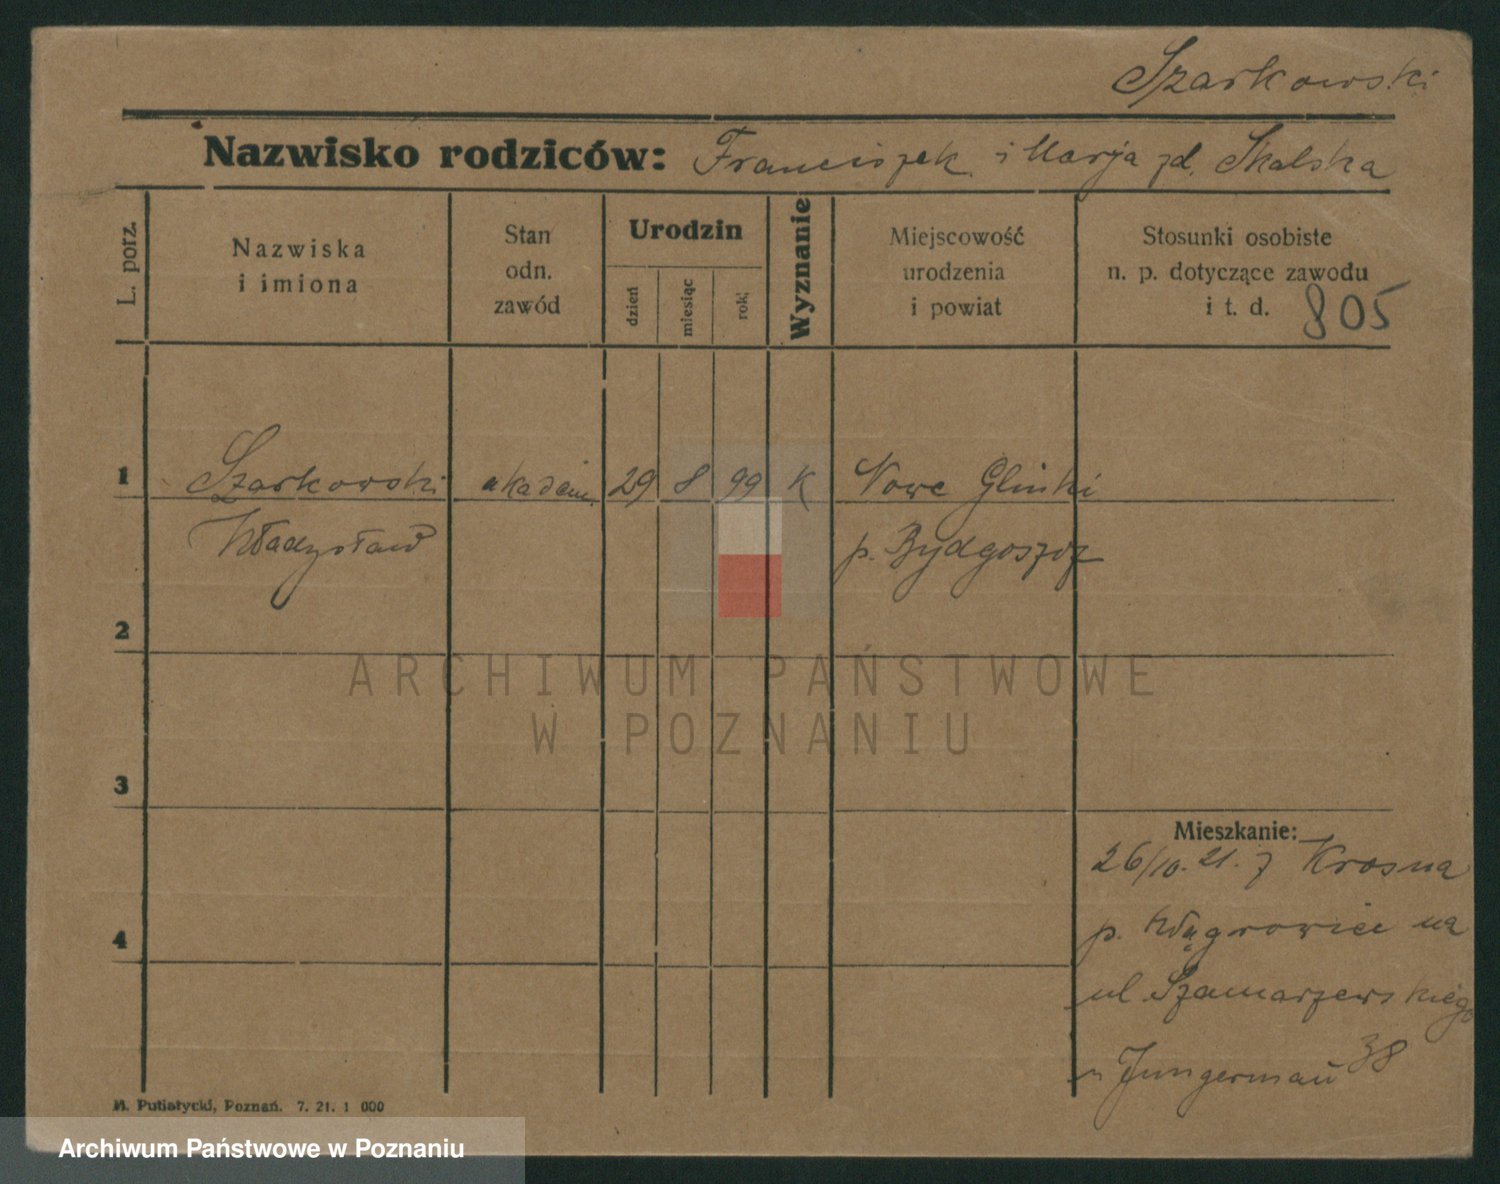 Szarkowski
Nazwisko rodziców: Franciszek i Marja zd. Skalska
L. porz.
Nazwiska
i imiona
Stan
odn.
zawód
Urodzin
dzień
miesiąc
rok
Wyznanie
Miejscowość
urodzenia
i powiat
Stosunki osobiste
n. p. dotyczące zawodu
i t. d. 805
1 Szarkowski akadem. 29 8 99 K Nowe Glinki
Władysław p. Bydgoszcz
2
ARCHIWUM PAŃSTWOWE
W POZNANIU
3
Mieszkanie:
26/10. 21. z Krosna
p. Wągrowiec na
4
ul. Szamarzewskiego
u Jungerman 38
M. Putiatycki, Poznań. 7. 21. 1 000
Archiwum Państwowe w Poznaniu